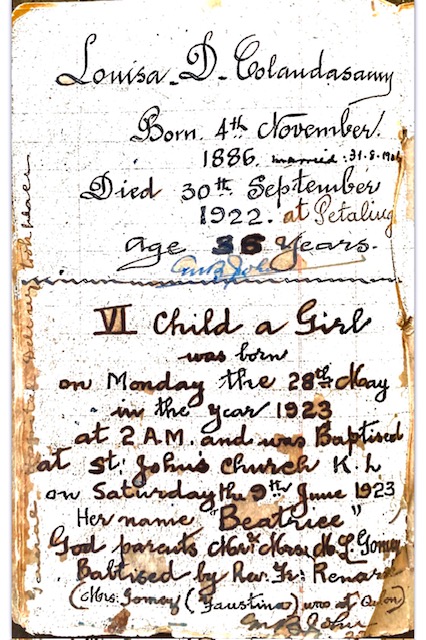 Louisa. D. Colandasamy
Born. 4th November.
1886. married: 31-8-
Died 30th September
1922. at Petaling
age 36 Years.
VI Child a Girl
was born
on Monday the 28th May
in the year 1923
at 2 A.M. and was Baptised
at St: John's Church K. L
on Saturday the 9th June 1923
Her name "Beatrice"
God parents Mr. & Mrs: M. L. Gomey
Baptised by Rev. Fr: Renard
(Mrs: Gomey (Faustina) was at